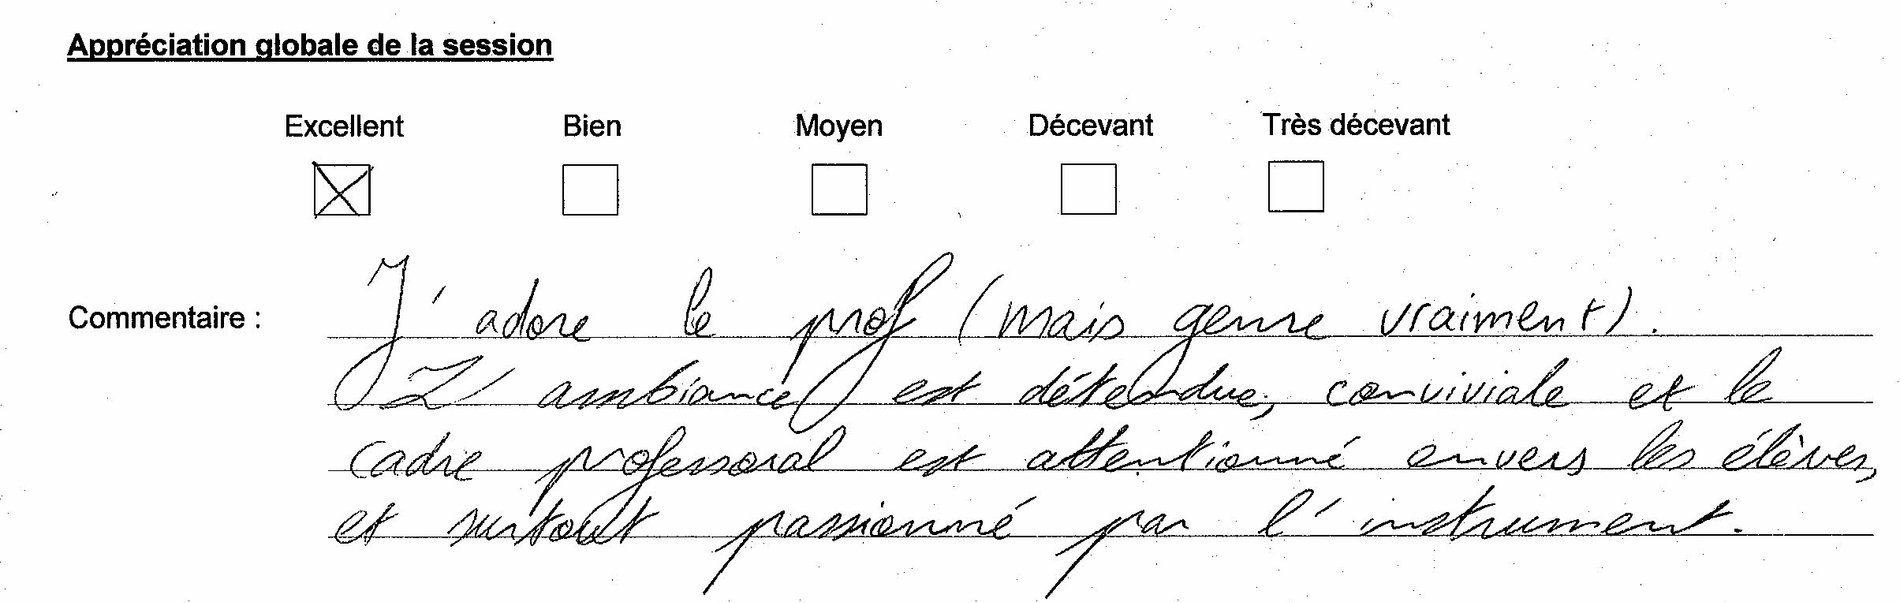 Appréciation globale de la session
Excellent Bien Moyen Décevant Très décevant
Commentaire : J'adore le prof (mais genre vraiment).
L'ambiance est détendue, conviviale et le
cadre professoral est attentionné envers les élèves,
et surtout passionné par l'instrument.